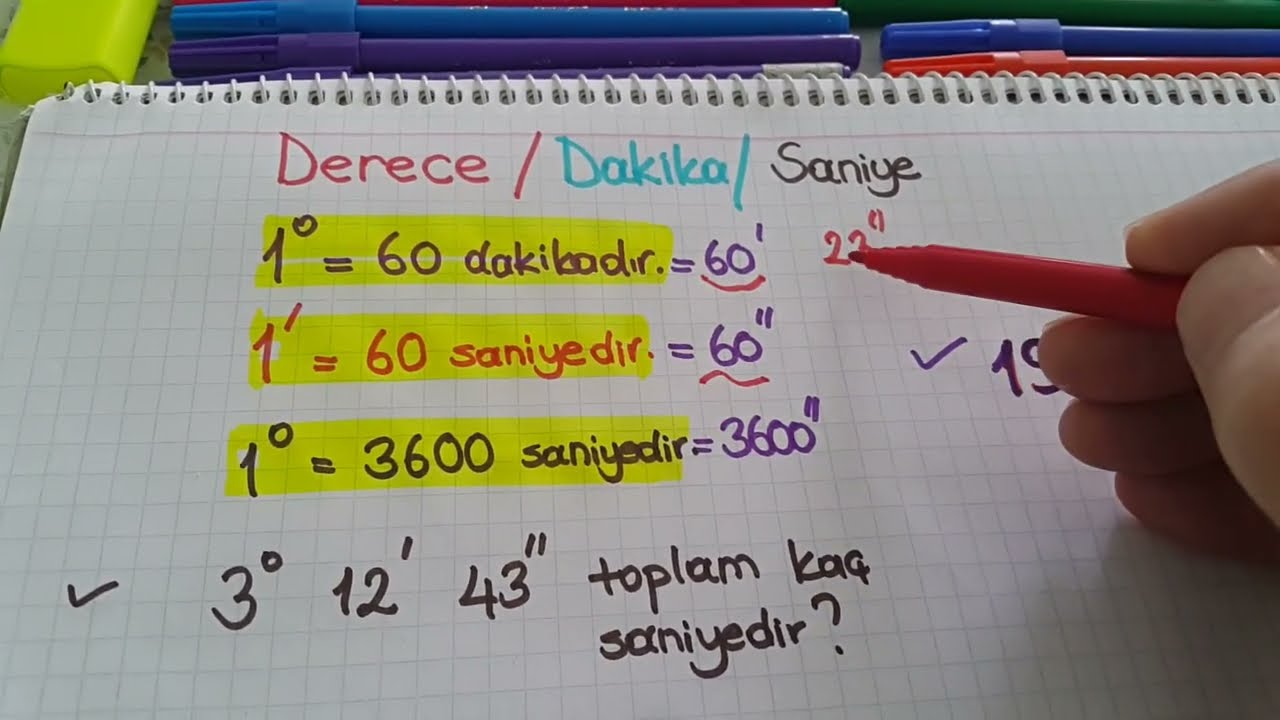 Derece / Dakika / Saniye
1° = 60 dakikadır. = 60'
22"
1' = 60 saniyedir. = 60"
✓ 19
1° = 3600 saniyedir = 3600"
✓ 3° 12' 43" toplam kaç
saniyedir?